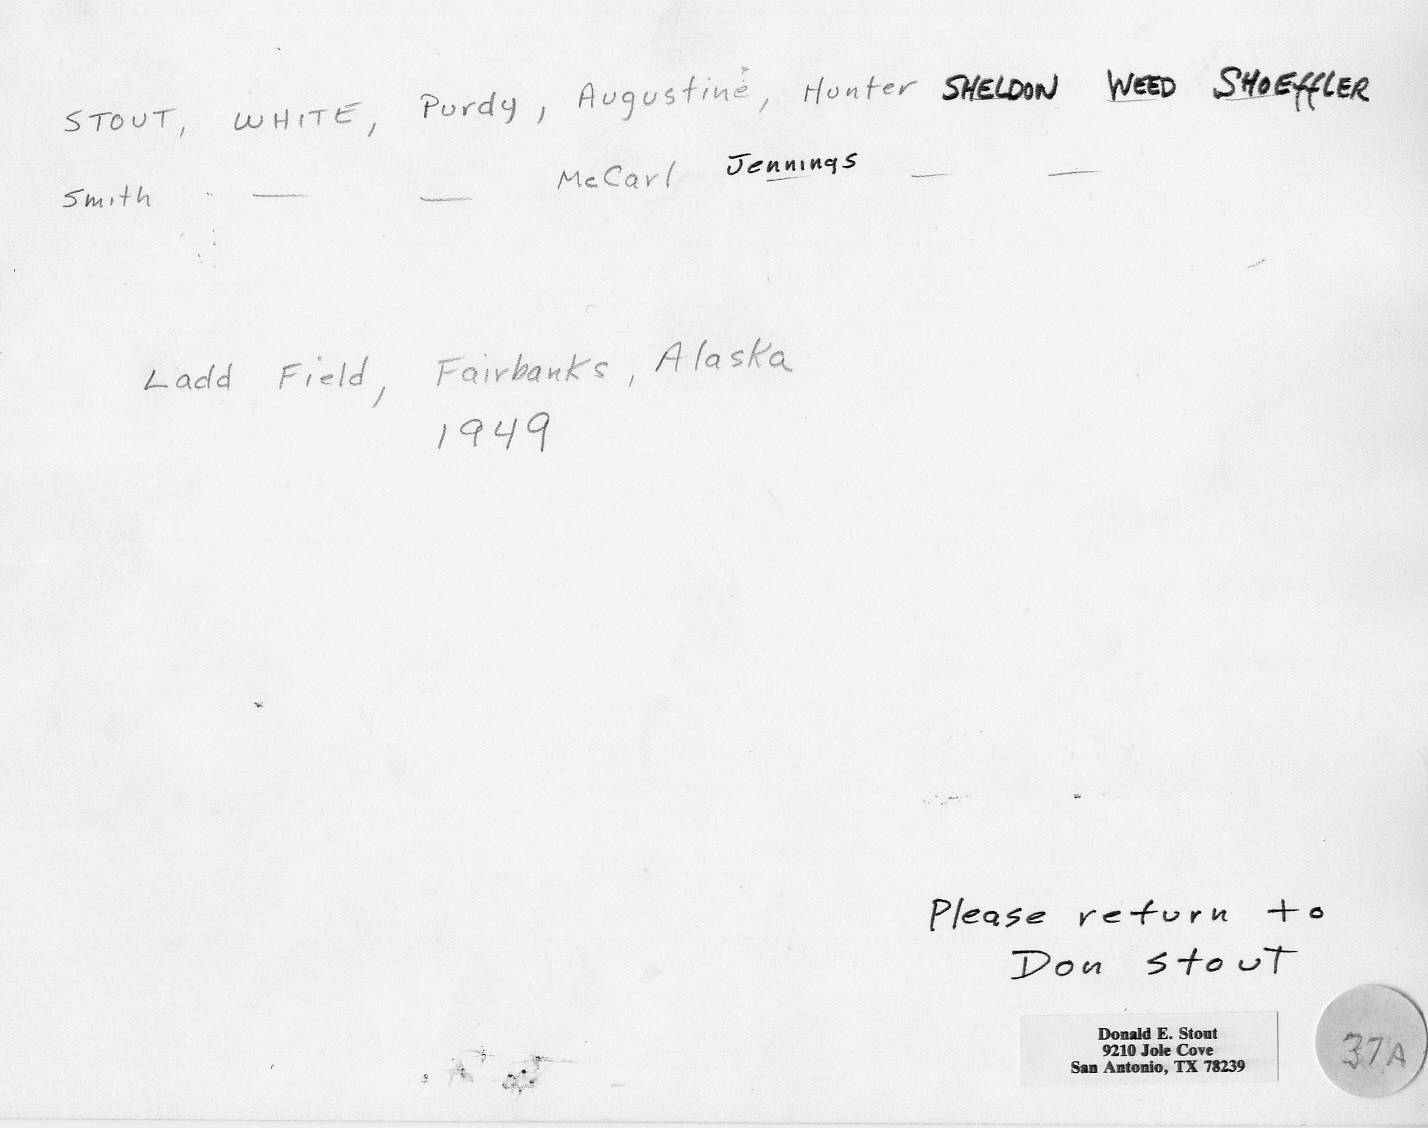 STOUT, WHITE, Purdy, Augustine, Hunter SHELDON WEED SHOEffLER
Smith — — McCarl Jennings — —
Ladd Field, Fairbanks, Alaska
1949
Please return to
Don Stout
Donald E. Stout
9210 Jole Cove
San Antonio, TX 78239
37A